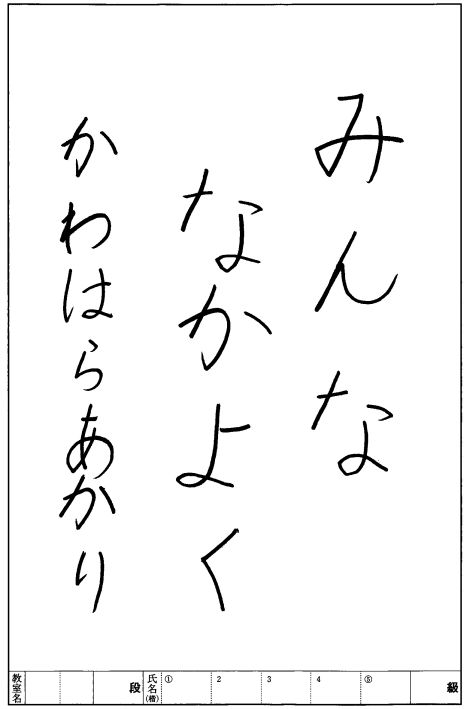 みんな
なかよく
かわはらあかり
教室名 段 氏名(楷) ① 2 3 4 ⑤ 級